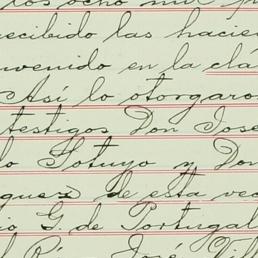 los ocho mil p
recibido las hacien
nvenido en la clá
Así lo otorgaro
testigos Don Jose
lo Sotuyo y Don
guez de esta vec
io G. de Portugal
José Vill